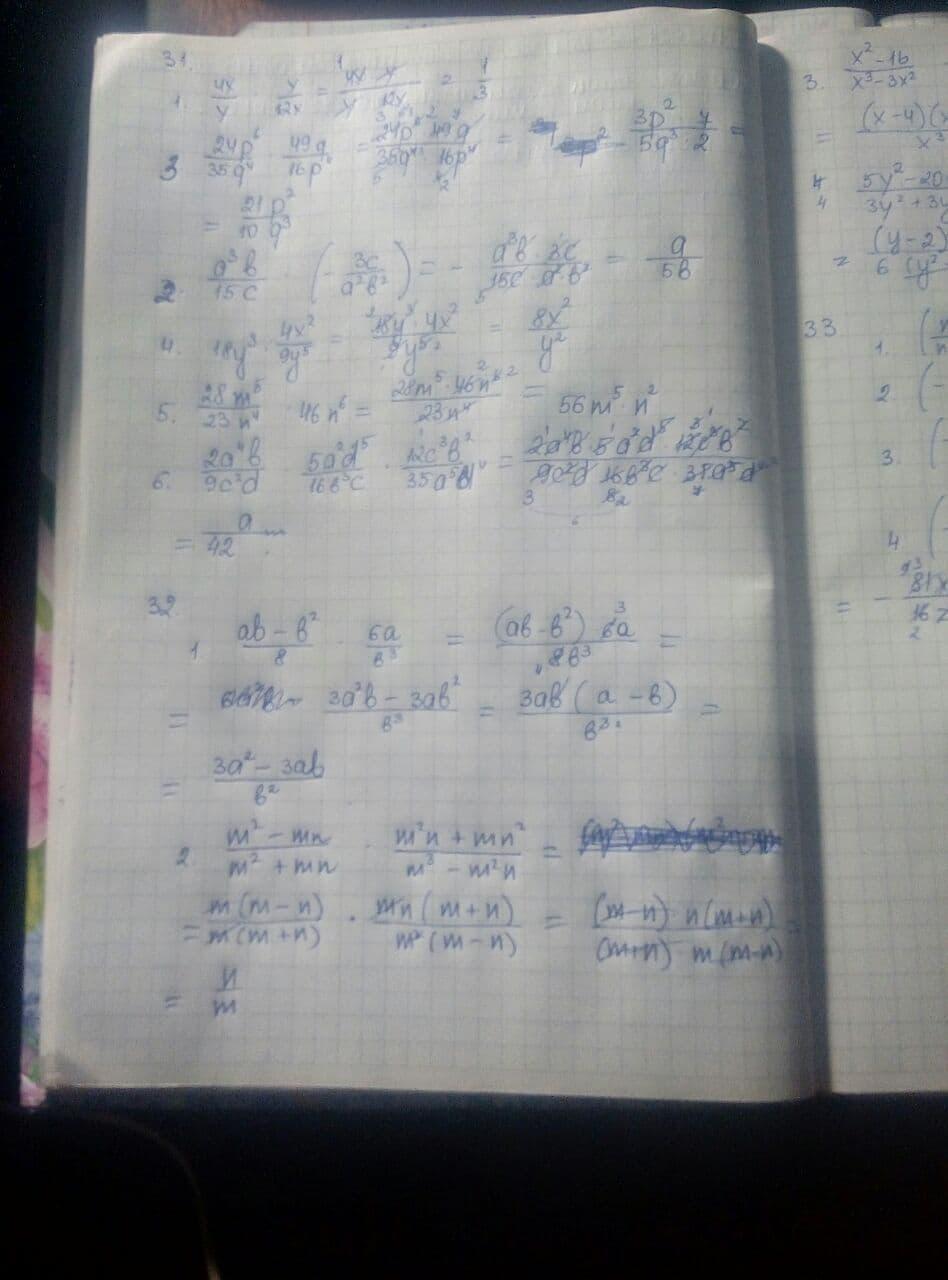 31.
1. 4x/y · y/12x = 4x · y / y · 12x = 1/3
3 24p⁶/35q⁴ · 49q/16p⁴ = 24p⁶ · 49q / 35q⁴ · 16p⁴ = 3p² · 7 / 5q³ · 2 =
= 21p²/10q³
2. a³b/15c · (- 3c/a²b²) = - a³b · 3c / 15c · a²b² = a/5b
4. 18y³ · 4x²/9y⁵ = 18y³ · 4x² / 9y⁵ = 8x²/y²
5. 28m⁵/23n⁴ · 46n⁶ = 28m⁵ · 46n⁶ / 23n⁴ = 56m⁵ · n²
6. 2a⁴b/9c²d · 5a²d⁵/16b³c · 12c³b²/35a⁵d⁴ =
= a/42
32.
1 ab - b²/8 · 6a/b³ = (ab - b²) 6a / 8b³ =
= 3a²b - 3ab²/b³ = 3ab (a - b)/b³ =
= 3a² - 3ab/b²
2. m² - mn/m² + mn · m²n + mn²/m³ - m²n =
= m(m - n)/m(m + n) · mn(m + n)/m²(m - n) = (m - n) n(m + n)/(m + n) m(m - n) =
= n/m
3. x² - 16/x³ - 3x²
= (x - 4)(x
4 5y² - 20
3y² + 3y
= (y - 2)
6 (y²
33
1. (
2 (-
3. (
4 (
= - 81x
16z